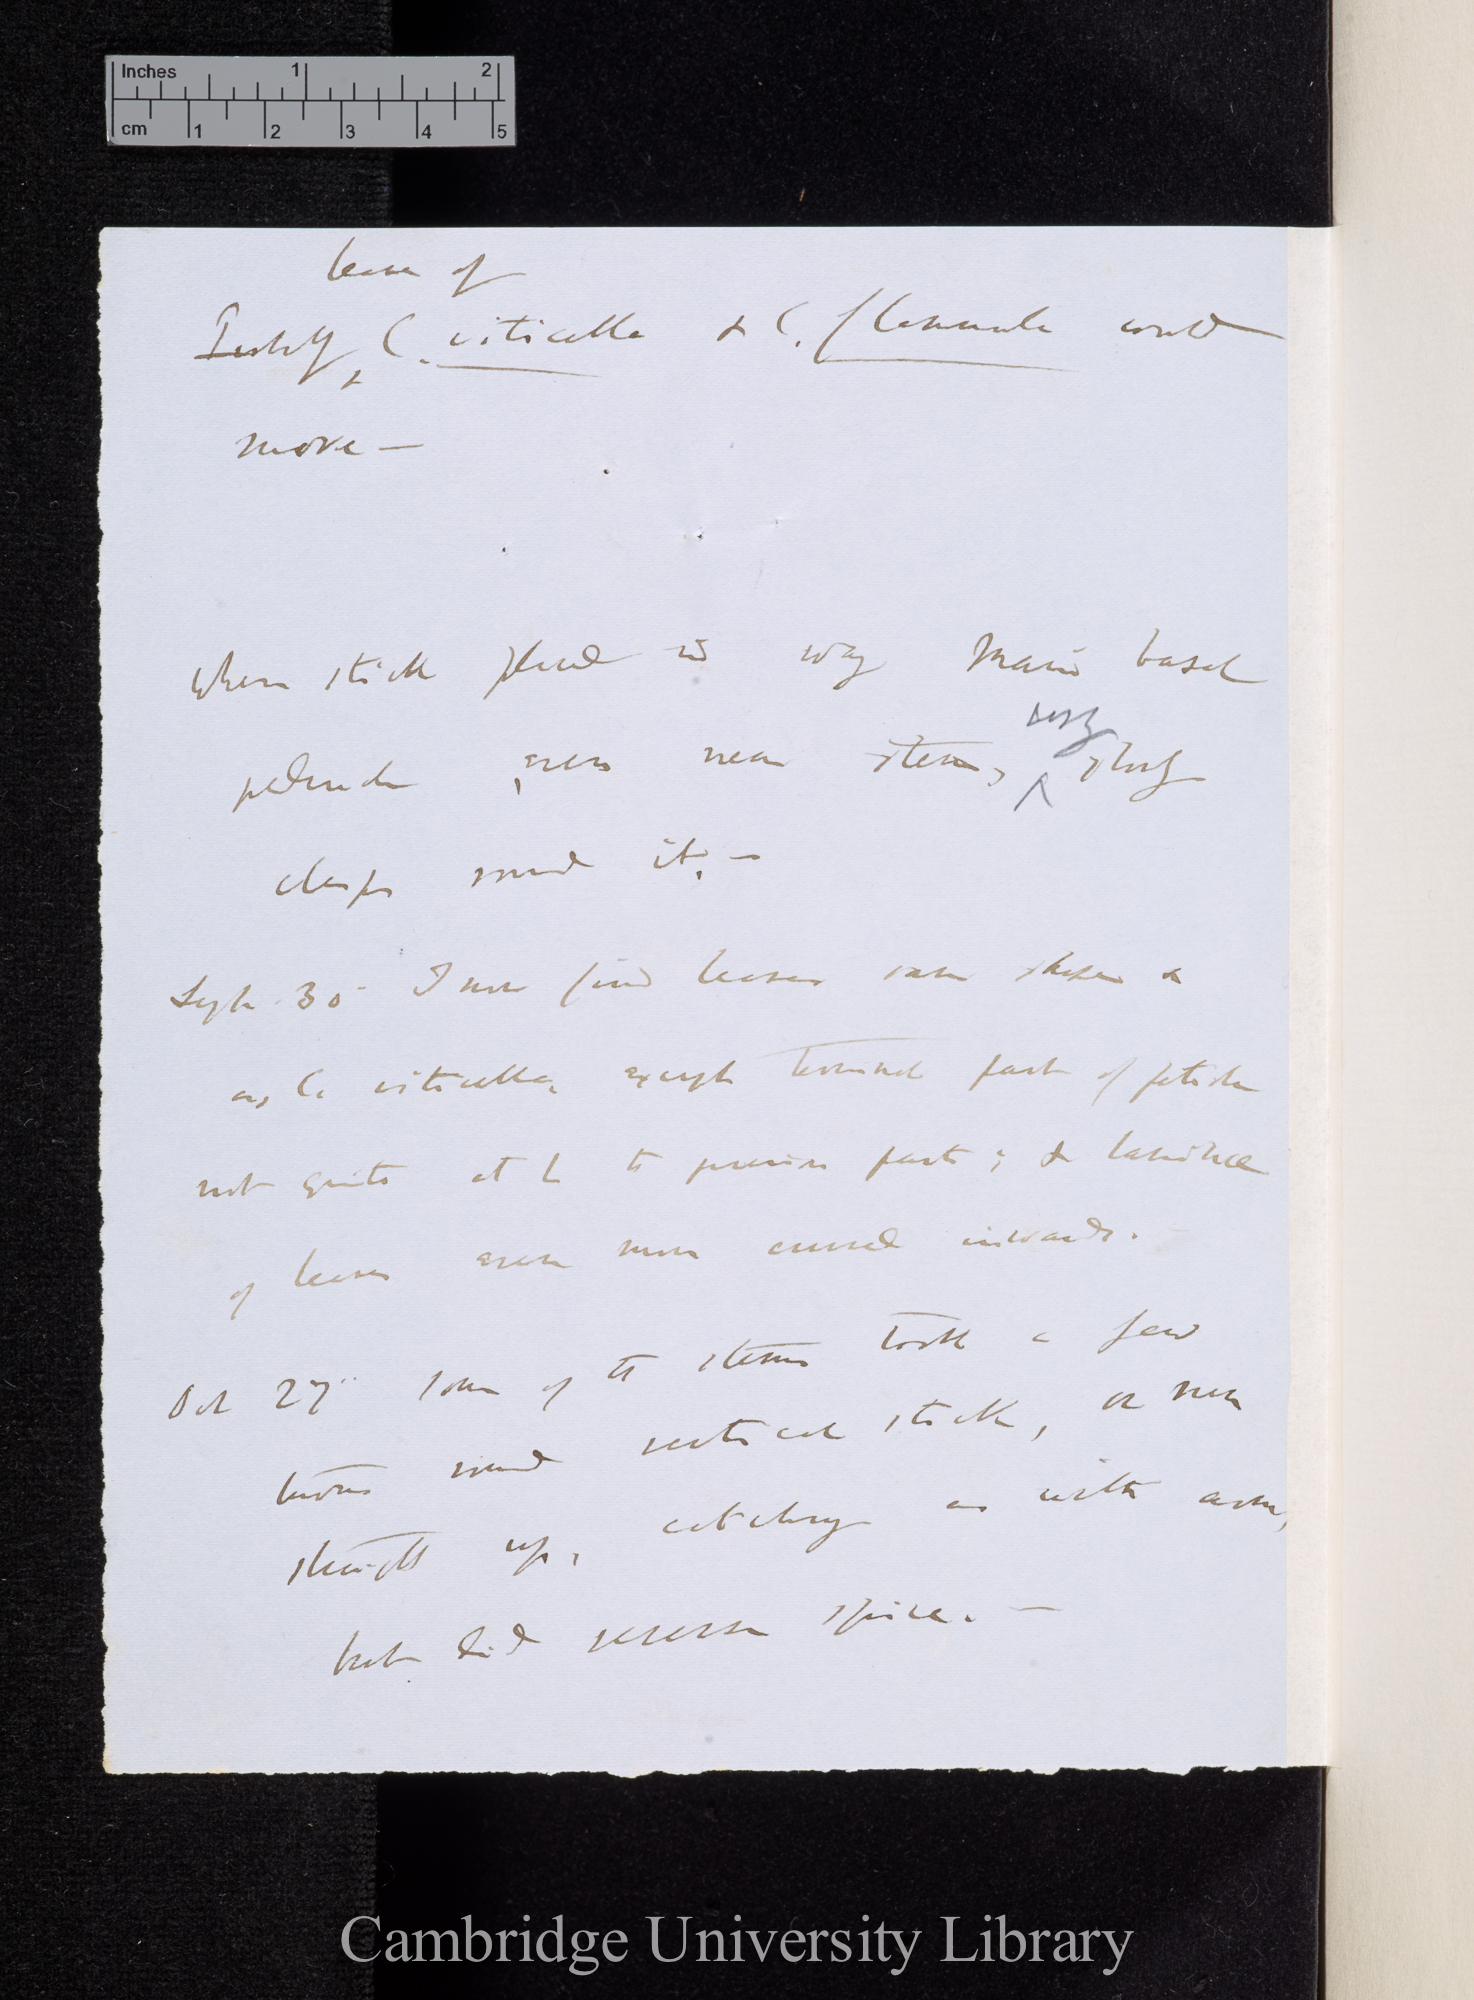 Inches 1 2
cm 1 2 3 4 5
leaves of
C. viticella & C. flammula would
move —
When stick placed in way main basal
peduncle, even near stem, very slowly
clasps round it. —
Sept. 30 I now find leaves same shape &
as C. viticella, except terminal part of petiole
not quite at L to previous part; & laminae
of leaves even more curved inwards.
Oct 27" Some of the stems took a few
turns round vertical stick, or ran
straight up, catching as with arm,
but did reverse spire. —
Cambridge University Library